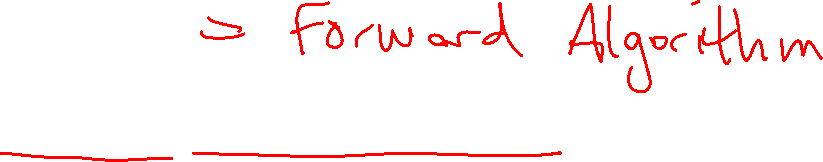 = Forward Algorithm